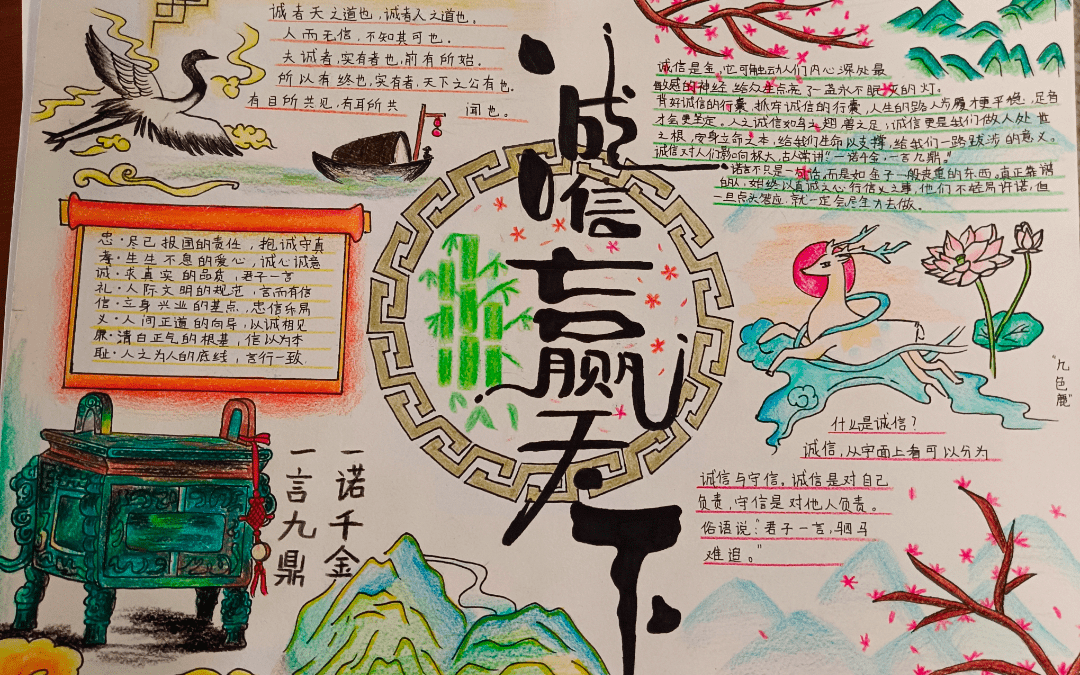 诚者天之道也,诚者人之道也。
人而无信,不知其可也。
夫诚者,实有者也,前有所始。
所以有终也,实有者,天下之公有也。
有目所共见,有耳所共 闻也。
诚信赢天下
诚信是金,它可触动人们内心深处最
敏感的神经,给众生点亮了一盏永不眠灭的灯。
背好诚信的行囊,抓牢诚信的行囊,人生的路人步履才更平稳,足音
才会更坚定。人之诚信如身之翅,兽之足,诚信更是我们做人处世
之根,安身立命之本,给我们生命以支撑,给我们一路跋涉的意义。
诚信对人们影响极大,古人常讲“一诺千金,一言九鼎。”
诺言不只是一句话,而是如金子一般贵重的东西。真正靠谱
的人,始终以真诚之心行信义之事,他们不轻易许诺,但
一旦点头答应,就一定会尽全力去做。
忠·尽己报国的责任,抱诚守真
孝·生生不息的爱心,诚心诚意
诚·求真实的品质,君子一言
礼·人际文明的规范,言而有信
信·立身兴业的基点,忠信乐易
义·人间正道的向导,以诚相见
廉·清白正气的根基,信以为本
耻·人之为人的底线,言行一致
“九色鹿”
一诺千金
一言九鼎
什么是诚信?
诚信,从字面上看可以分为
诚信与守信,诚信是对自己
负责,守信是对他人负责。
俗语说:“君子一言,驷马
难追。”